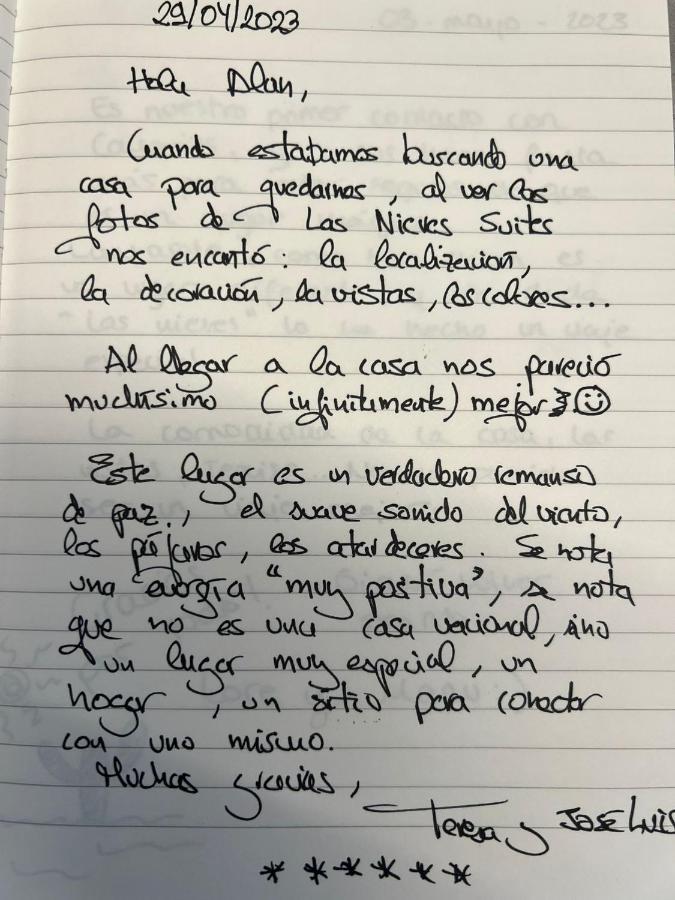 29/04/2023
Hola Alan,
Cuando estabamos buscando una
casa para quedarnos, al ver las
fotos de Las Nieves Suites
nos encantó: la localización,
la decoración, la vistas, los colores...
Al llegar a la casa nos pareció
muchísimo (infinitamente) mejor
Este lugar es un verdadero remanso
de paz., el suave sonido del viento,
los pájaros, los atardeceres. Se nota
una energía "muy positiva", se nota
que no es una casa vacional, sino
un lugar muy especial, un
hogar, un sitio para conectar
con uno mismo.
Muchas gracias,
Teresa y JOSE LUIS
* * * * * *
03 - mayo - 2023
Es nuestro primer contacto con